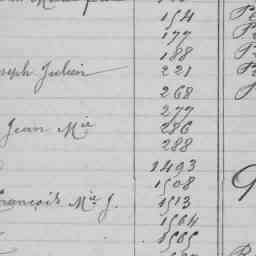 154
177
188
Joseph Julien 221
268
277
Jean Mie 286
288
1493
1508
François Mie J. 1513
1564
1565